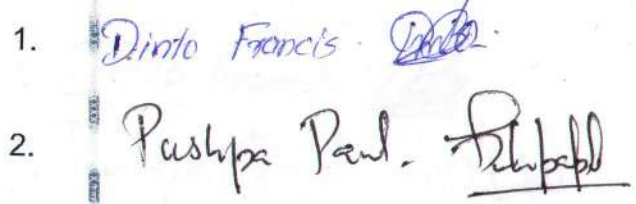 1. Dinto Francis.
2. Pushpa Paul.